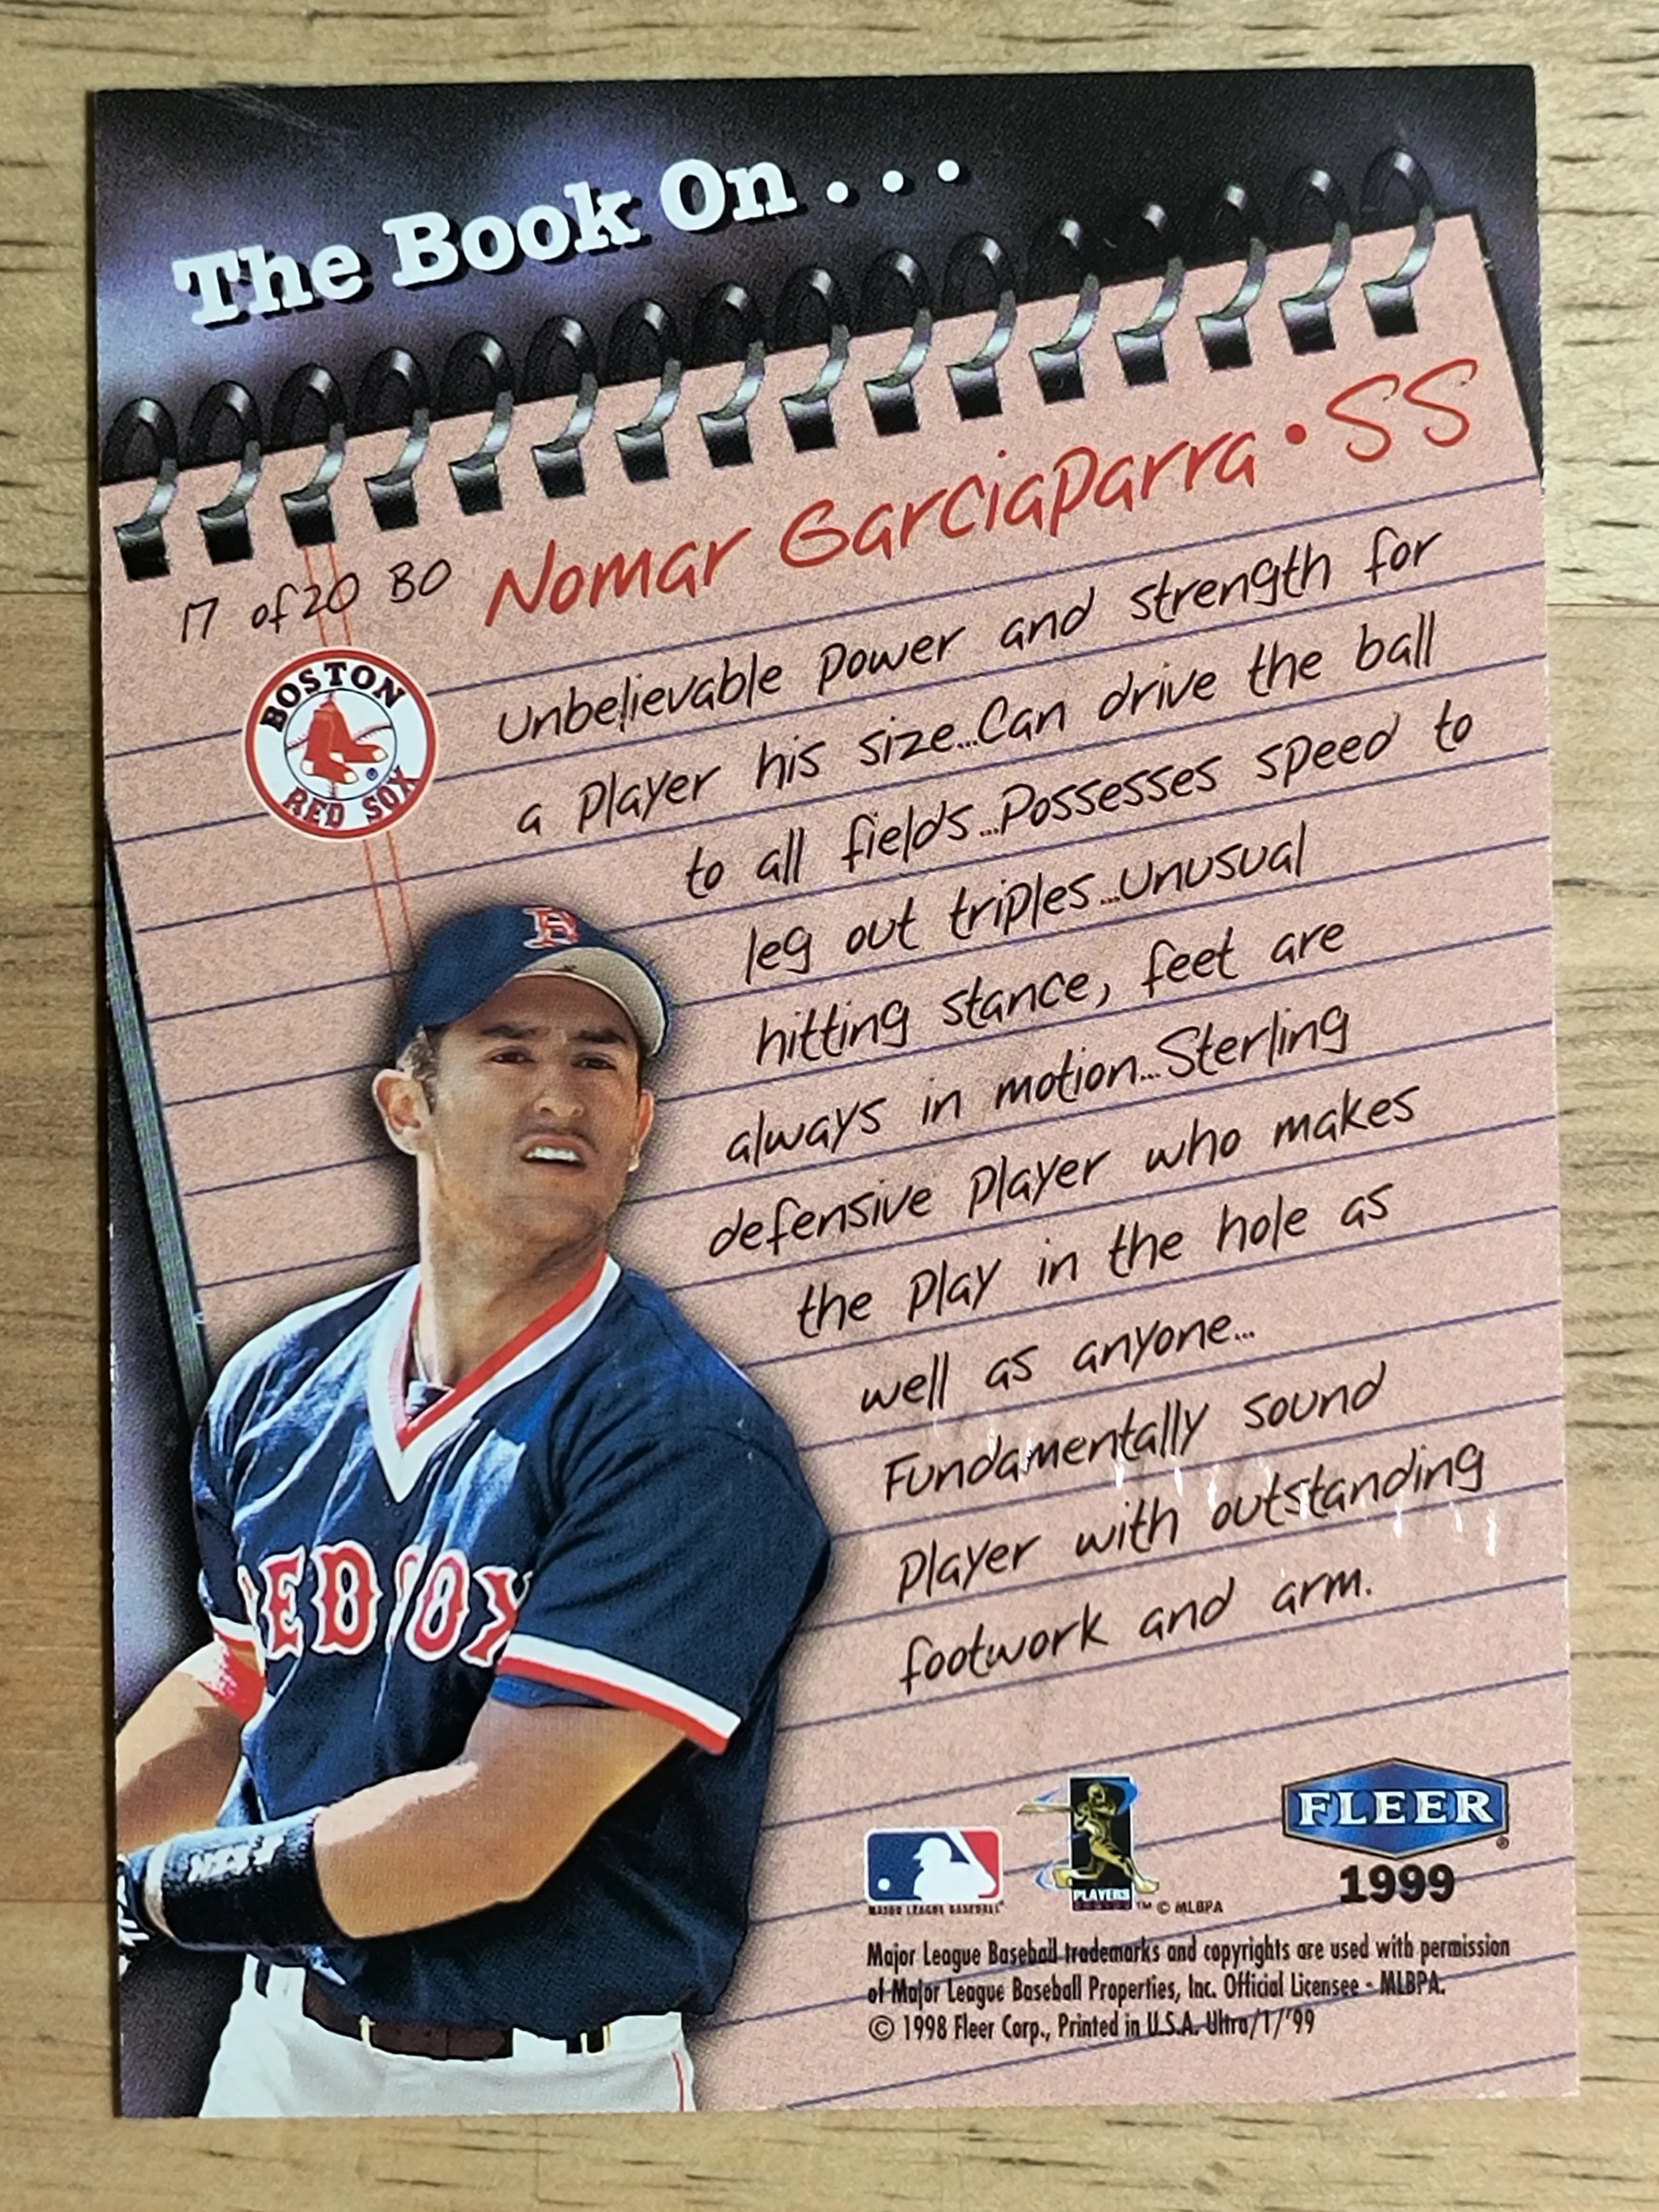 The Book On . . .
Nomar Garciaparra • SS
17 of 20 BO
BOSTON
RED SOX
Unbelievable power and strength for
a player his size...Can drive the ball
to all fields...Possesses speed to
leg out triples...Unusual
hitting stance, feet are
always in motion...Sterling
defensive player who makes
the play in the hole as
well as anyone...
Fundamentally sound
player with outstanding
footwork and arm.
B
RED SOX
MAJOR LEAGUE BASEBALL
PLAYERS
™ © MLBPA
FLEER ®
1999
Major League Baseball trademarks and copyrights are used with permission
of Major League Baseball Properties, Inc. Official Licensee - MLBPA.
© 1998 Fleer Corp., Printed in U.S.A. Ultra/1/'99